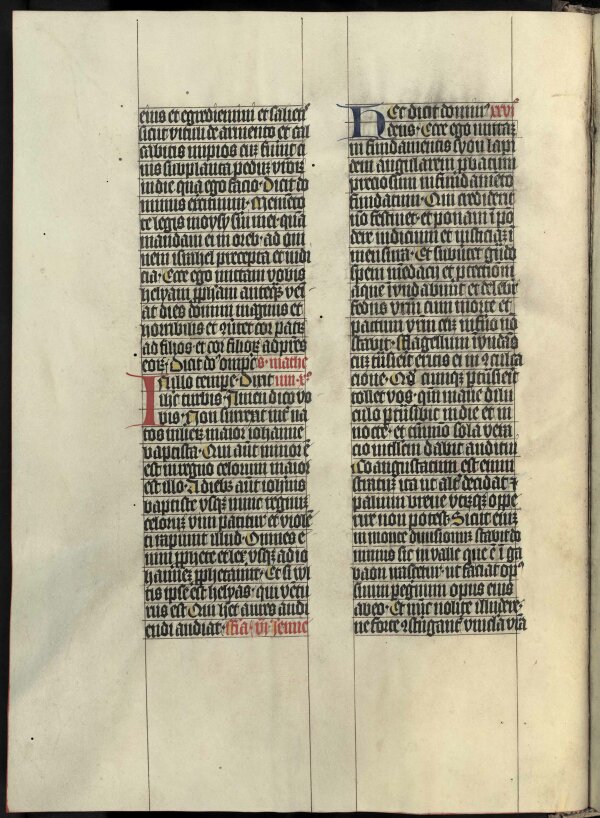 eius et egrediemini et saliet
sicut vituli de armento et cal
cabitis impios cu fuerit ci
nis sub planta pedu vrou
in die qua ego facio · Dicit do
minus exercituum · Memento
te legis moysi serui mei qua
mandaui ei in oreb · ad om
nem israhel precepta et iudi
cia · Ecce ego mittam vobis
helyam pphetam anteq veni
at dies domini magnus et
horribilis et couertet cor patru
ad filios et cor filiou ad patres
eou · Dicit do omps s · mathe
In illo tempe · Dixit xi
ihc turbis · Amen dico vo
bis · Non surrexit int na
tos muliex maior iohanne
baptista · Qui aut minor e
est in regno celorum maior
est illo · A diebus aut iohnis
baptiste vsq nunc regnu
celorum vim patitur et violen
ti rapiunt illud · Omnes e
nim pphete et lex vsq ad io
hannez pphetauerunt · Et si vul
tis ipse est helyas · qui ventu
rus est · Qui het aures audi
endi audiat · fia · vi Jeiune
Hec dicit domin xxvi
deus · Ecce ego mittam
in fundamentis syon lapi
dem angularem pbatum
preciosum in fundameto
fundatum · Qui crediderit
no festinet · et ponam i po
dere iudicium et iusticia i
mensura · Et subuertet grando
spem mendacii et ptectione
aque inundabunt et delebit
fedus vrm cum morte et
pactum vrm cu inferno no
stabit · Flagellum inundas
cu tnsierit eritis ei in cculca
cione · Qn cunq ptnsierit
tollet vos · qm mane dilu
culo ptnsibit in die et in
nocte · et tmmo sola vexa
cio intellem dabit auditui
Coangustatum est enim
stratu ita ut alt decidat et
pallium breue vtruq ope
rire non potest · Sicut enim
in monte diuisionum stabit do
minus sic in valle que e i ga
baon irascetur · ut faciat op
suum peginum opus eius
ab eo · Et nuc nolite illudere ·
ne forte cstringant vincla vra